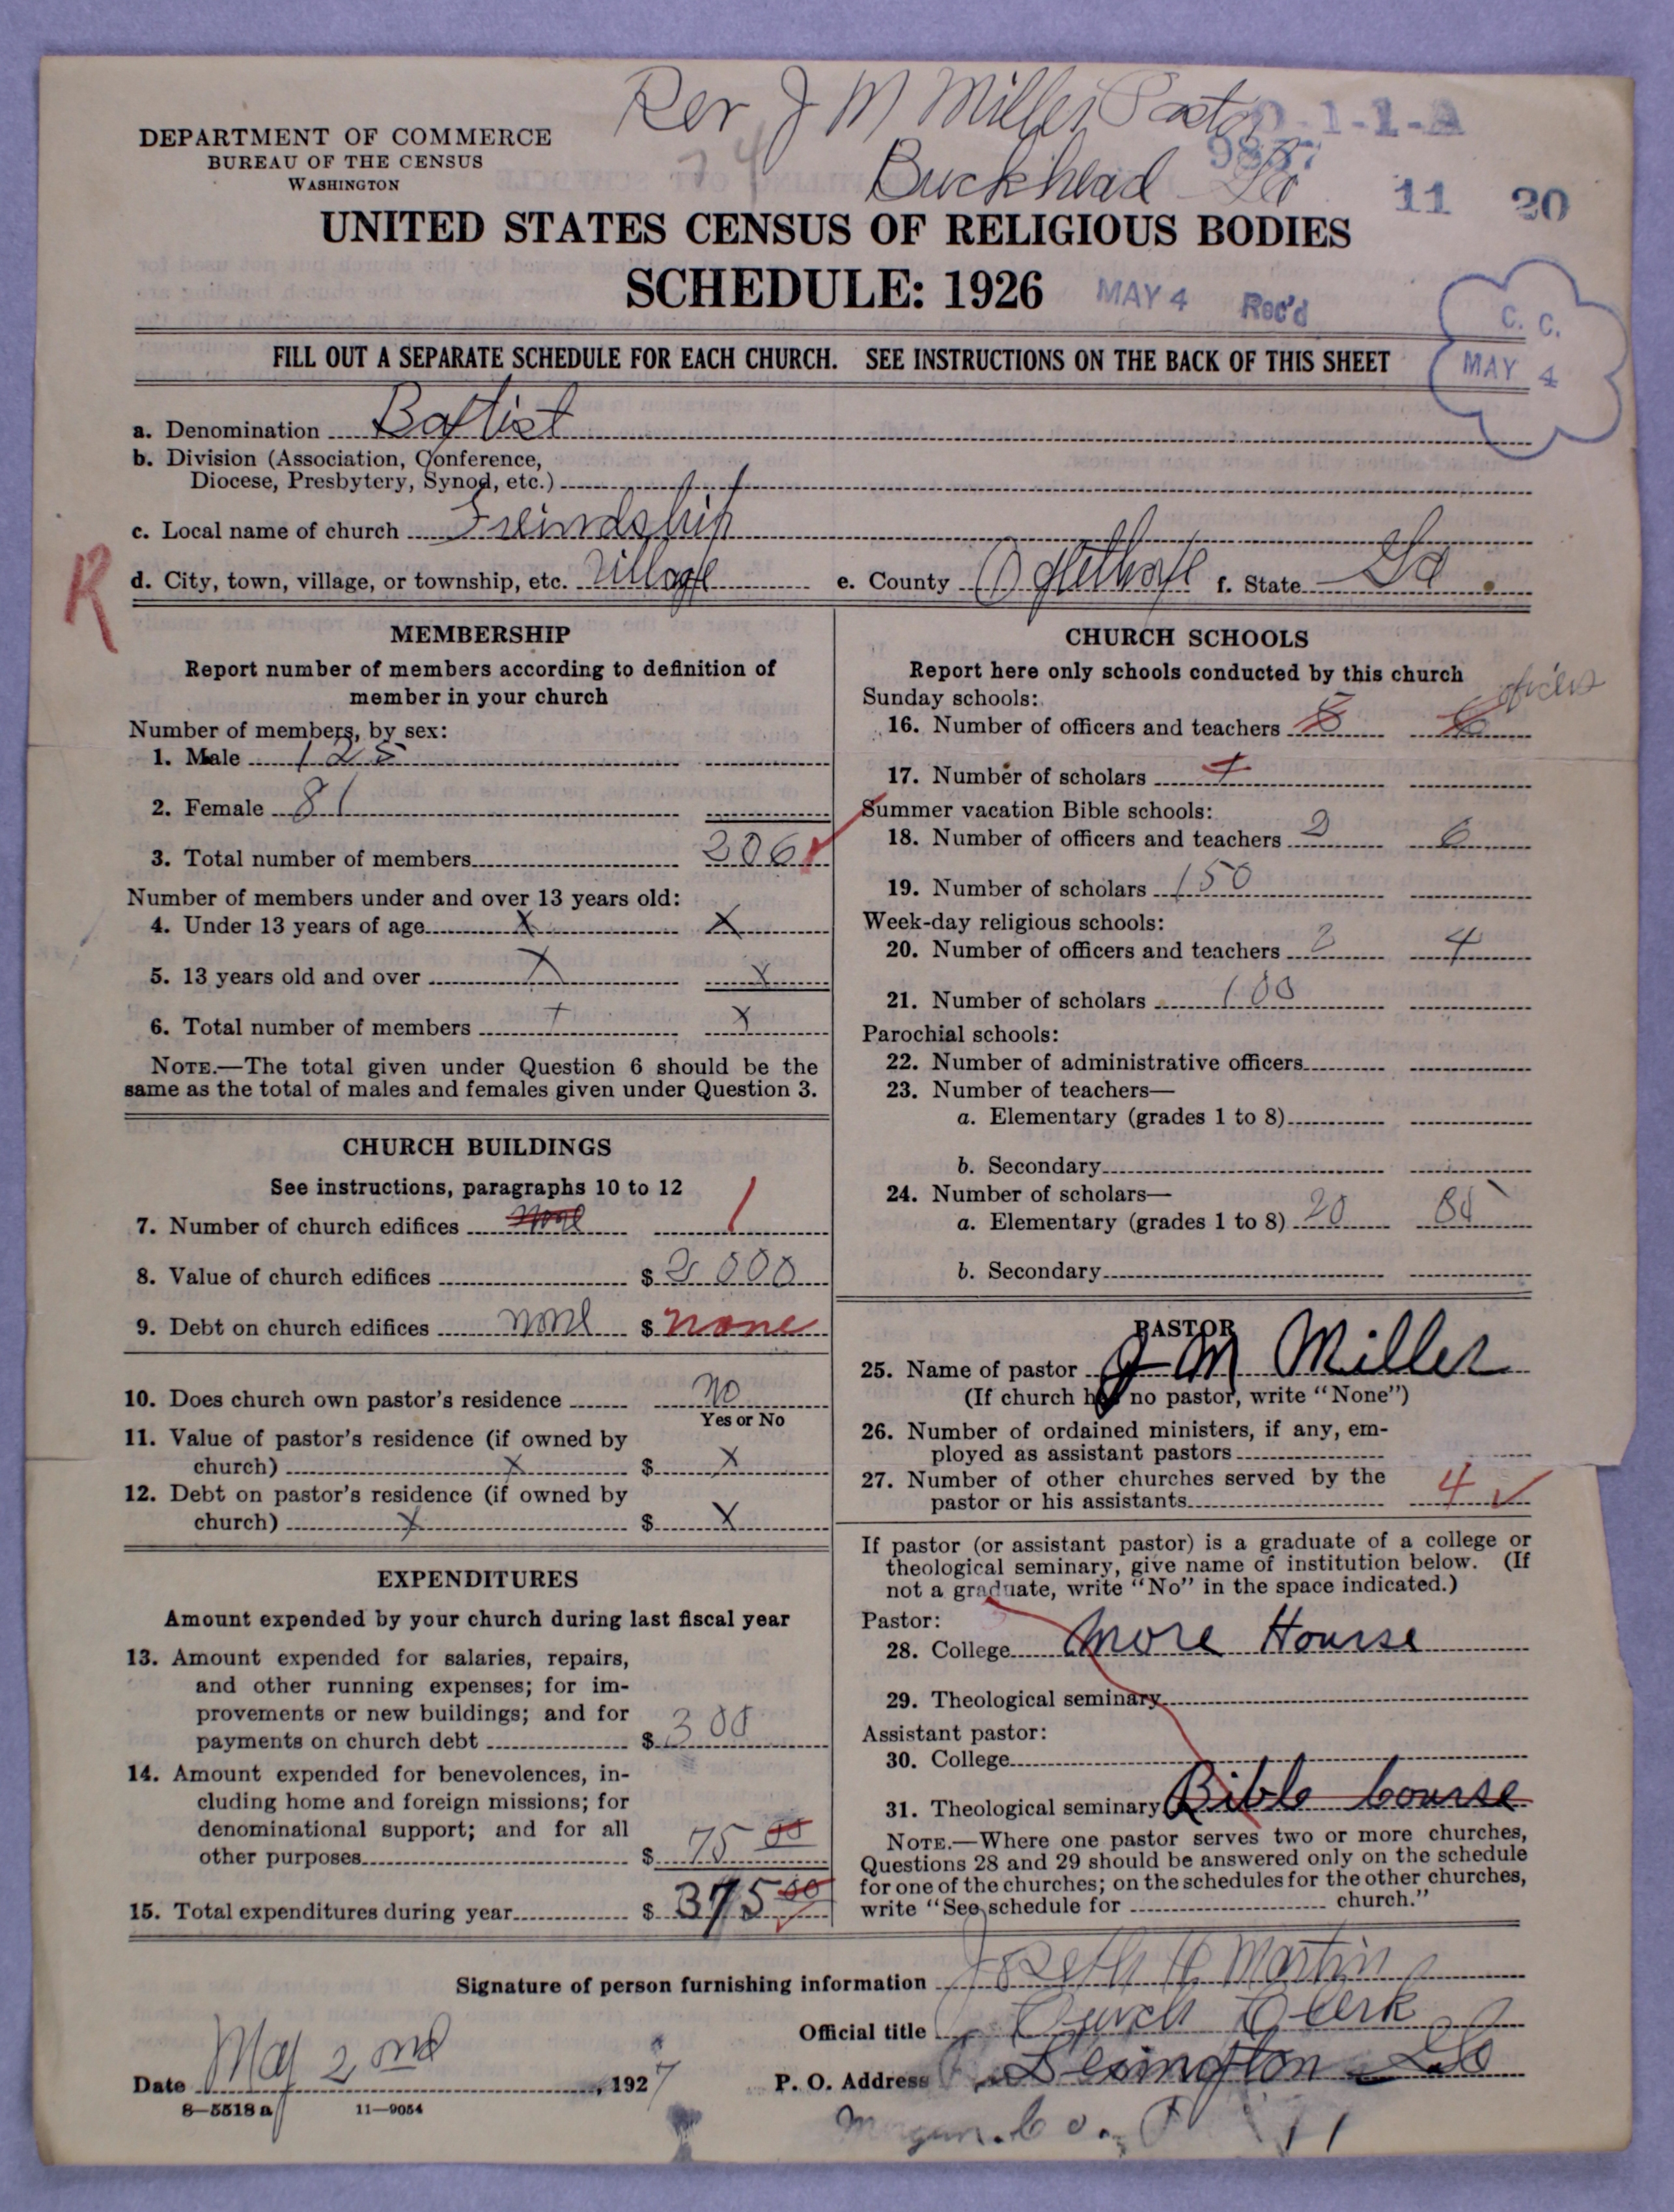 Rev J M Miller Pastor
D-1-1-A
74
Buckhead Ga
11 20
DEPARTMENT OF COMMERCE
BUREAU OF THE CENSUS
WASHINGTON
UNITED STATES CENSUS OF RELIGIOUS BODIES
SCHEDULE: 1926
MAY 4 Rec'd
C. C.
MAY 4
FILL OUT A SEPARATE SCHEDULE FOR EACH CHURCH. SEE INSTRUCTIONS ON THE BACK OF THIS SHEET
a. Denomination Baptist
b. Division (Association, Conference,
Diocese, Presbytery, Synod, etc.)
c. Local name of church Freindship
R
d. City, town, village, or township, etc. Village e. County Oglethorpe f. State Ga
MEMBERSHIP
Report number of members according to definition of
member in your church
Number of members, by sex:
1. Male 125
2. Female 81
3. Total number of members 206
Number of members under and over 13 years old:
4. Under 13 years of age X X
5. 13 years old and over X X
6. Total number of members X X
NOTE.—The total given under Question 6 should be the
same as the total of males and females given under Question 3.
CHURCH BUILDINGS
See instructions, paragraphs 10 to 12
7. Number of church edifices none 1
8. Value of church edifices $ 2000
9. Debt on church edifices none $ none
10. Does church own pastor's residence no
Yes or No
11. Value of pastor's residence (if owned by
church) X $ X
12. Debt on pastor's residence (if owned by
church) X $ X
EXPENDITURES
Amount expended by your church during last fiscal year
13. Amount expended for salaries, repairs,
and other running expenses; for im-
provements or new buildings; and for
payments on church debt $ 300
14. Amount expended for benevolences, in-
cluding home and foreign missions; for
denominational support; and for all
other purposes $ 75 00
15. Total expenditures during year $ 375 00
CHURCH SCHOOLS
Report here only schools conducted by this church
officers
Sunday schools:
16. Number of officers and teachers 8 6
17. Number of scholars
Summer vacation Bible schools:
18. Number of officers and teachers 2 6
19. Number of scholars 150
Week-day religious schools:
20. Number of officers and teachers 2 4
21. Number of scholars 100
Parochial schools:
22. Number of administrative officers
23. Number of teachers—
a. Elementary (grades 1 to 8)
b. Secondary
24. Number of scholars—
a. Elementary (grades 1 to 8) 20 80
b. Secondary
PASTOR
25. Name of pastor J M Miller
(If church has no pastor, write "None")
26. Number of ordained ministers, if any, em-
ployed as assistant pastors
27. Number of other churches served by the
pastor or his assistants 4
If pastor (or assistant pastor) is a graduate of a college or
theological seminary, give name of institution below. (If
not a graduate, write "No" in the space indicated.)
Pastor:
28. College More Hourse
29. Theological seminary
Assistant pastor:
30. College
31. Theological seminary Bible Course
NOTE.—Where one pastor serves two or more churches,
Questions 28 and 29 should be answered only on the schedule
for one of the churches; on the schedules for the other churches,
write "See schedule for church."
Signature of person furnishing information Joseth H Martin
Official title Church Clerk
Date May 2nd, 1927 P. O. Address Lexington Ga
8—5518 a 11—9054